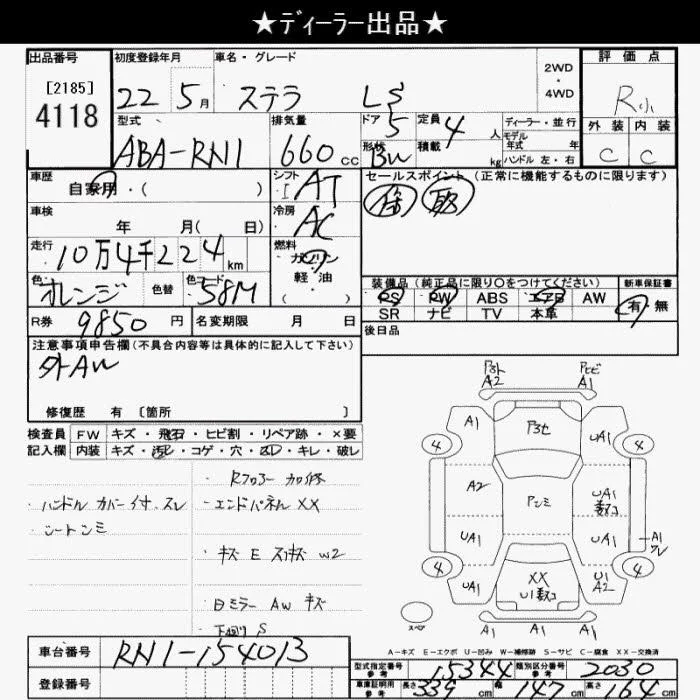 ★ディーラー出品★
出品番号 初度登録年月 車名・グレード 2WD・4WD 評価点
[2185]
4118
22 5月 ステラ LS R小
型式 排気量 ドア 定員 ディーラー・並行 外装 内装
5 4人 モデル年式 年
ABA-RN1 660cc 形状 BW 積載 kg ハンドル 左・右 C C
車歴 シフト セールスポイント (正常に機能するものに限ります)
自家用・( ) I AT 保 取
車検 冷房
年 月( 日) AC
走行 燃料
10万4千224km ガソリン
軽油
色 色替 色コード 装備品(純正品に限り○をつけてください) 新車保証書
オレンジ 58M PS PW ABS エアB AW 有・無
SR ナビ TV 本革
R券 9850円 名変期限 月 日 後日品
注意事項申告欄(不具合内容等は具体的に記入して下さい)
外AW
修復歴 有 [箇所 ]
検査員 FW キズ・飛石・ヒビ割・リペア跡・×要
記入欄 内装 キズ・汚レ・コゲ・穴・凹・キレ・破レ
・ハンドル カバー付、スレ
・シートシミ
・Rフロアー 加修
・エンドパネル XX
・キズ E スリキズ W2
・日ミラー AW キズ
・下廻り S
A2 A1
A1 UA1
4 4
A2 UA1
UA1 UA1 A1
4 4
UA1 XX U1 A2
A1 A1 A1
スペア
A-キズ E-エクボ U-凹み W-補修跡 S-サビ C-腐食 XX-交換済
車台番号 RN1-154013
登録番号
型式指定番号 参考 15344 類別区分番号 参考 2030
車庫証明用 参考 長さ 339cm 幅 147cm 高さ 164cm